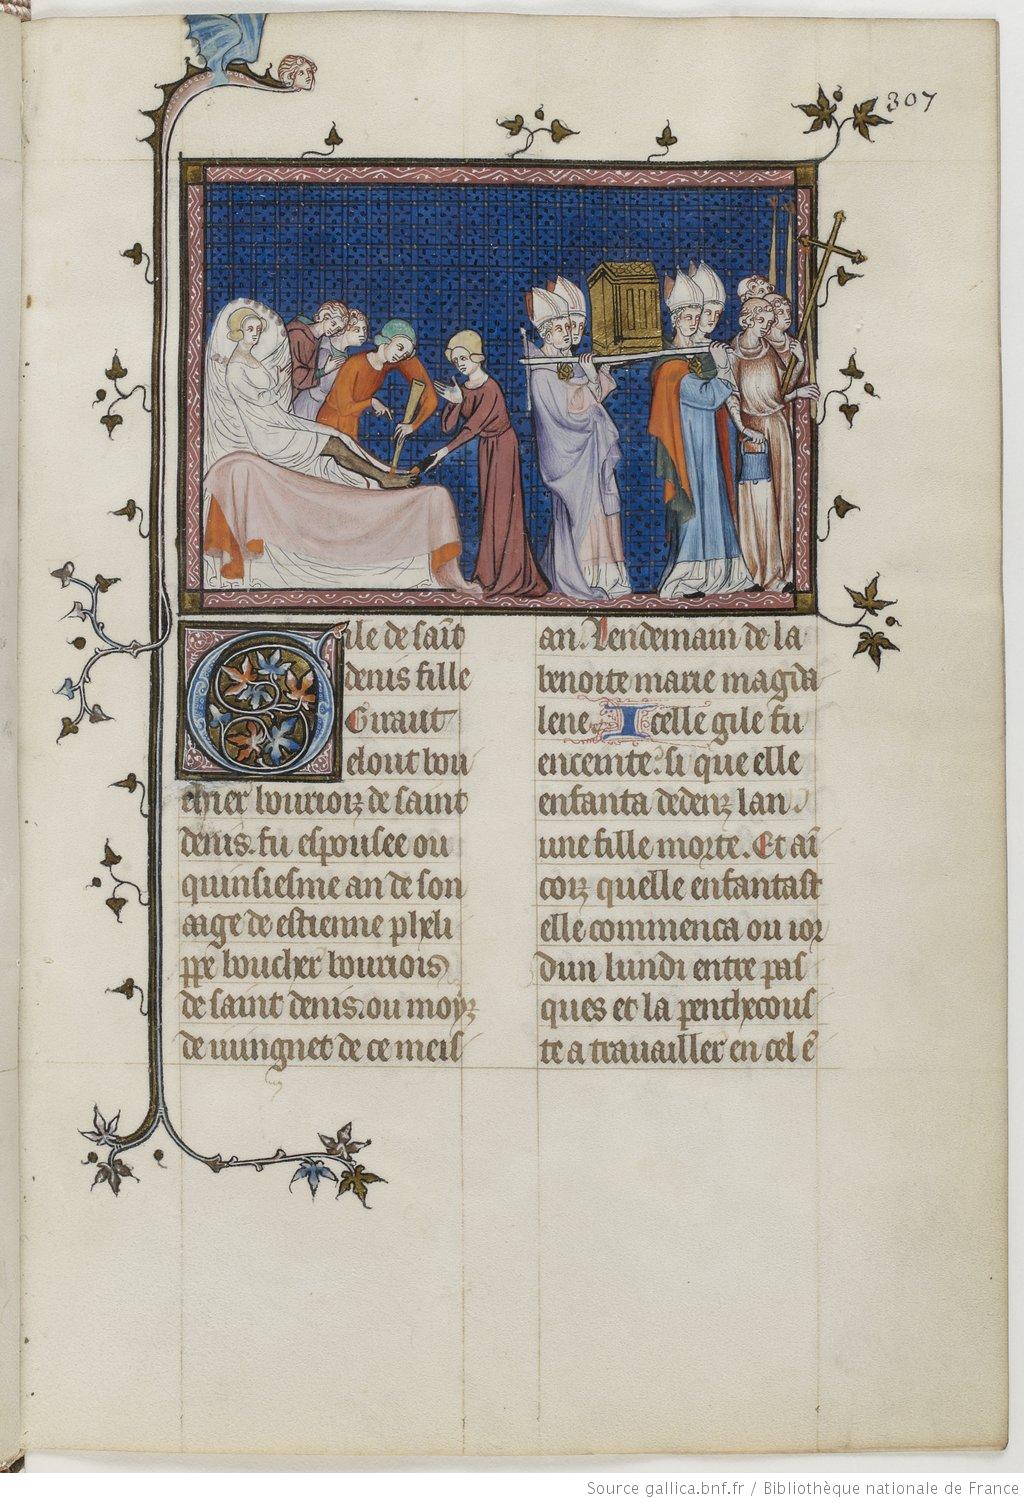 307
Gile de saīt
denis fille
Giraut
elout bou
chier bouriois de saint
denis. fu espousee ou
quinsiesme an de son
aige de estienne pheli
ppe boucher bouriois
de saint denis. ou moys
de uungnet de ce meis
an. Lendemain de la
benoite marie magda
lene. Icelle gile fu
enceinte. si que elle
enfanta dedenz lan
une fille morte. Et aī
cois quelle enfantast
elle commenca ou ior
dun lundi entre pas
ques et la penthecous
te a trauailler en cel ē
Source gallica.bnf.fr / Bibliothèque nationale de France